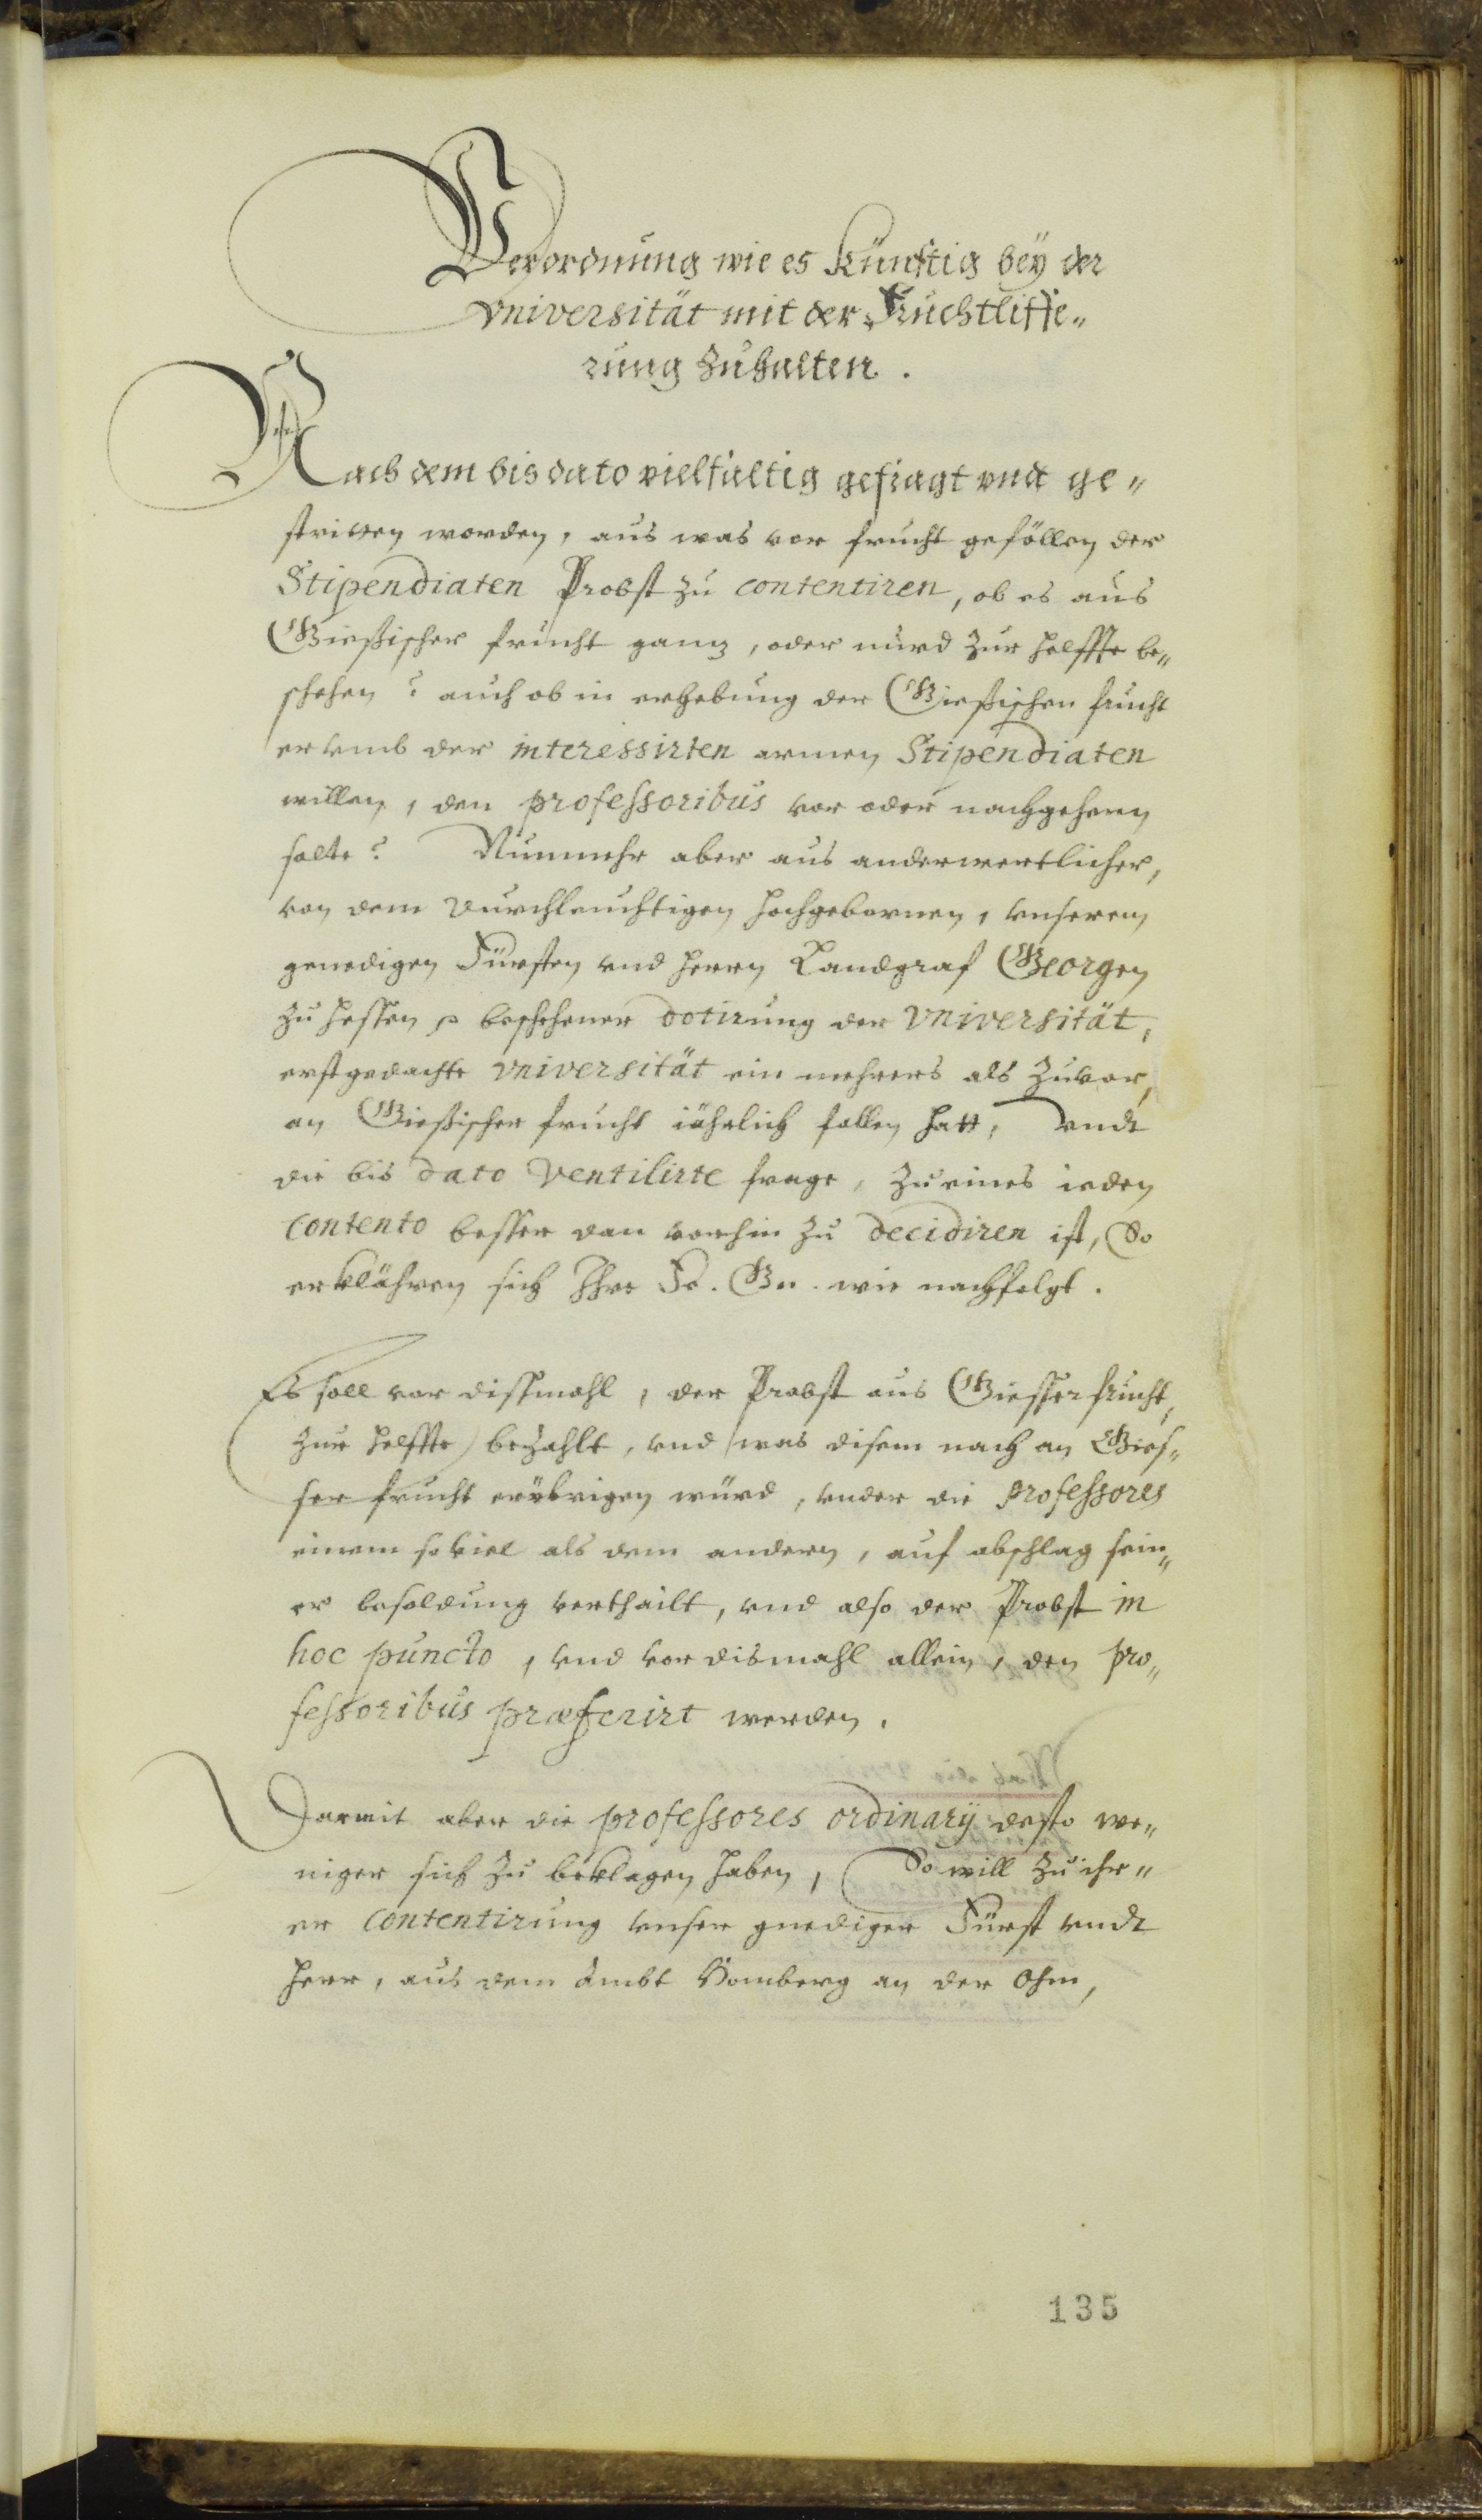 Verordnung wie es Künftig beÿ der
Vniversität mit der Fruchtliffe„
rung Zuhalten.
Nach dem bis dato vielfaltig gefragt vndt ge„
stritten worden, aus was vor frucht gefällen der
Stipendiaten Probst zu contentiren, ob es aus
Gießischer frucht gantz, oder nurd zur helffte be„
schehen? auch ob in erhebung der Gießischen frucht
er vmb der interessirten armen Stipendiaten
willen, den professoribus vor oder nachgehenn
solte? Nunmehr aber aus anderwertlicher,
von dem Durchleuchtigen hochgebornen, vnserem
genedigen Fürsten vnd herrn Landgraf Georgen
zu hessen beschehener dotirung der Vniversität,
erstgedachte Vniversität ein mehrers als zuvor,
an Gießischer frucht iährlich fallen hatt, vndt
die bis dato Ventilirte frage, zu eines ieden
Contento besser dan vorhin zu decidiren ist, So
erklähren sich Ihre Fr. Gn. wie nachfolgt.
Es soll vor dissmahl, der Probst aus Giesser frucht,
zur helffte bezahlt, vnd was disem nach an Gies„
ser frucht erübrigen würd, vnder die professores
einem so viel als dem andern, auf abschlag sein„
er besoldung vertheilt, vnd also der Probst in
hoc puncto, vnd vor dismahl allein, den pro„
fessoribus præferirt werden.
Darmit aber die professores ordinarÿ desto we„
niger sich zu beklagen haben, So will zu ihr„
er Contentirung vnser gnediger Fürst vndt
herr, aus dem Ambt Homberg an der Ohm,
135